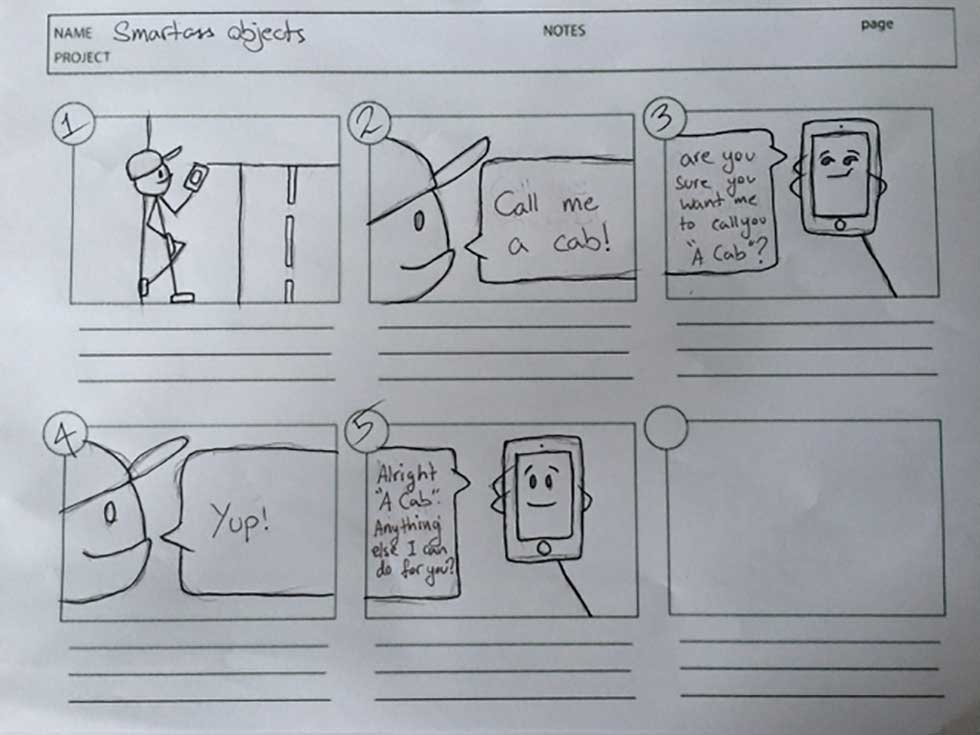 NAME Smartass objects
NOTES
page
PROJECT
1
2
Call me
a cab!
3
are you
sure you
want me
to call you
"A Cab"?
4
Yup!
5
Alright
"A Cab".
Anything
else I can
do for you?